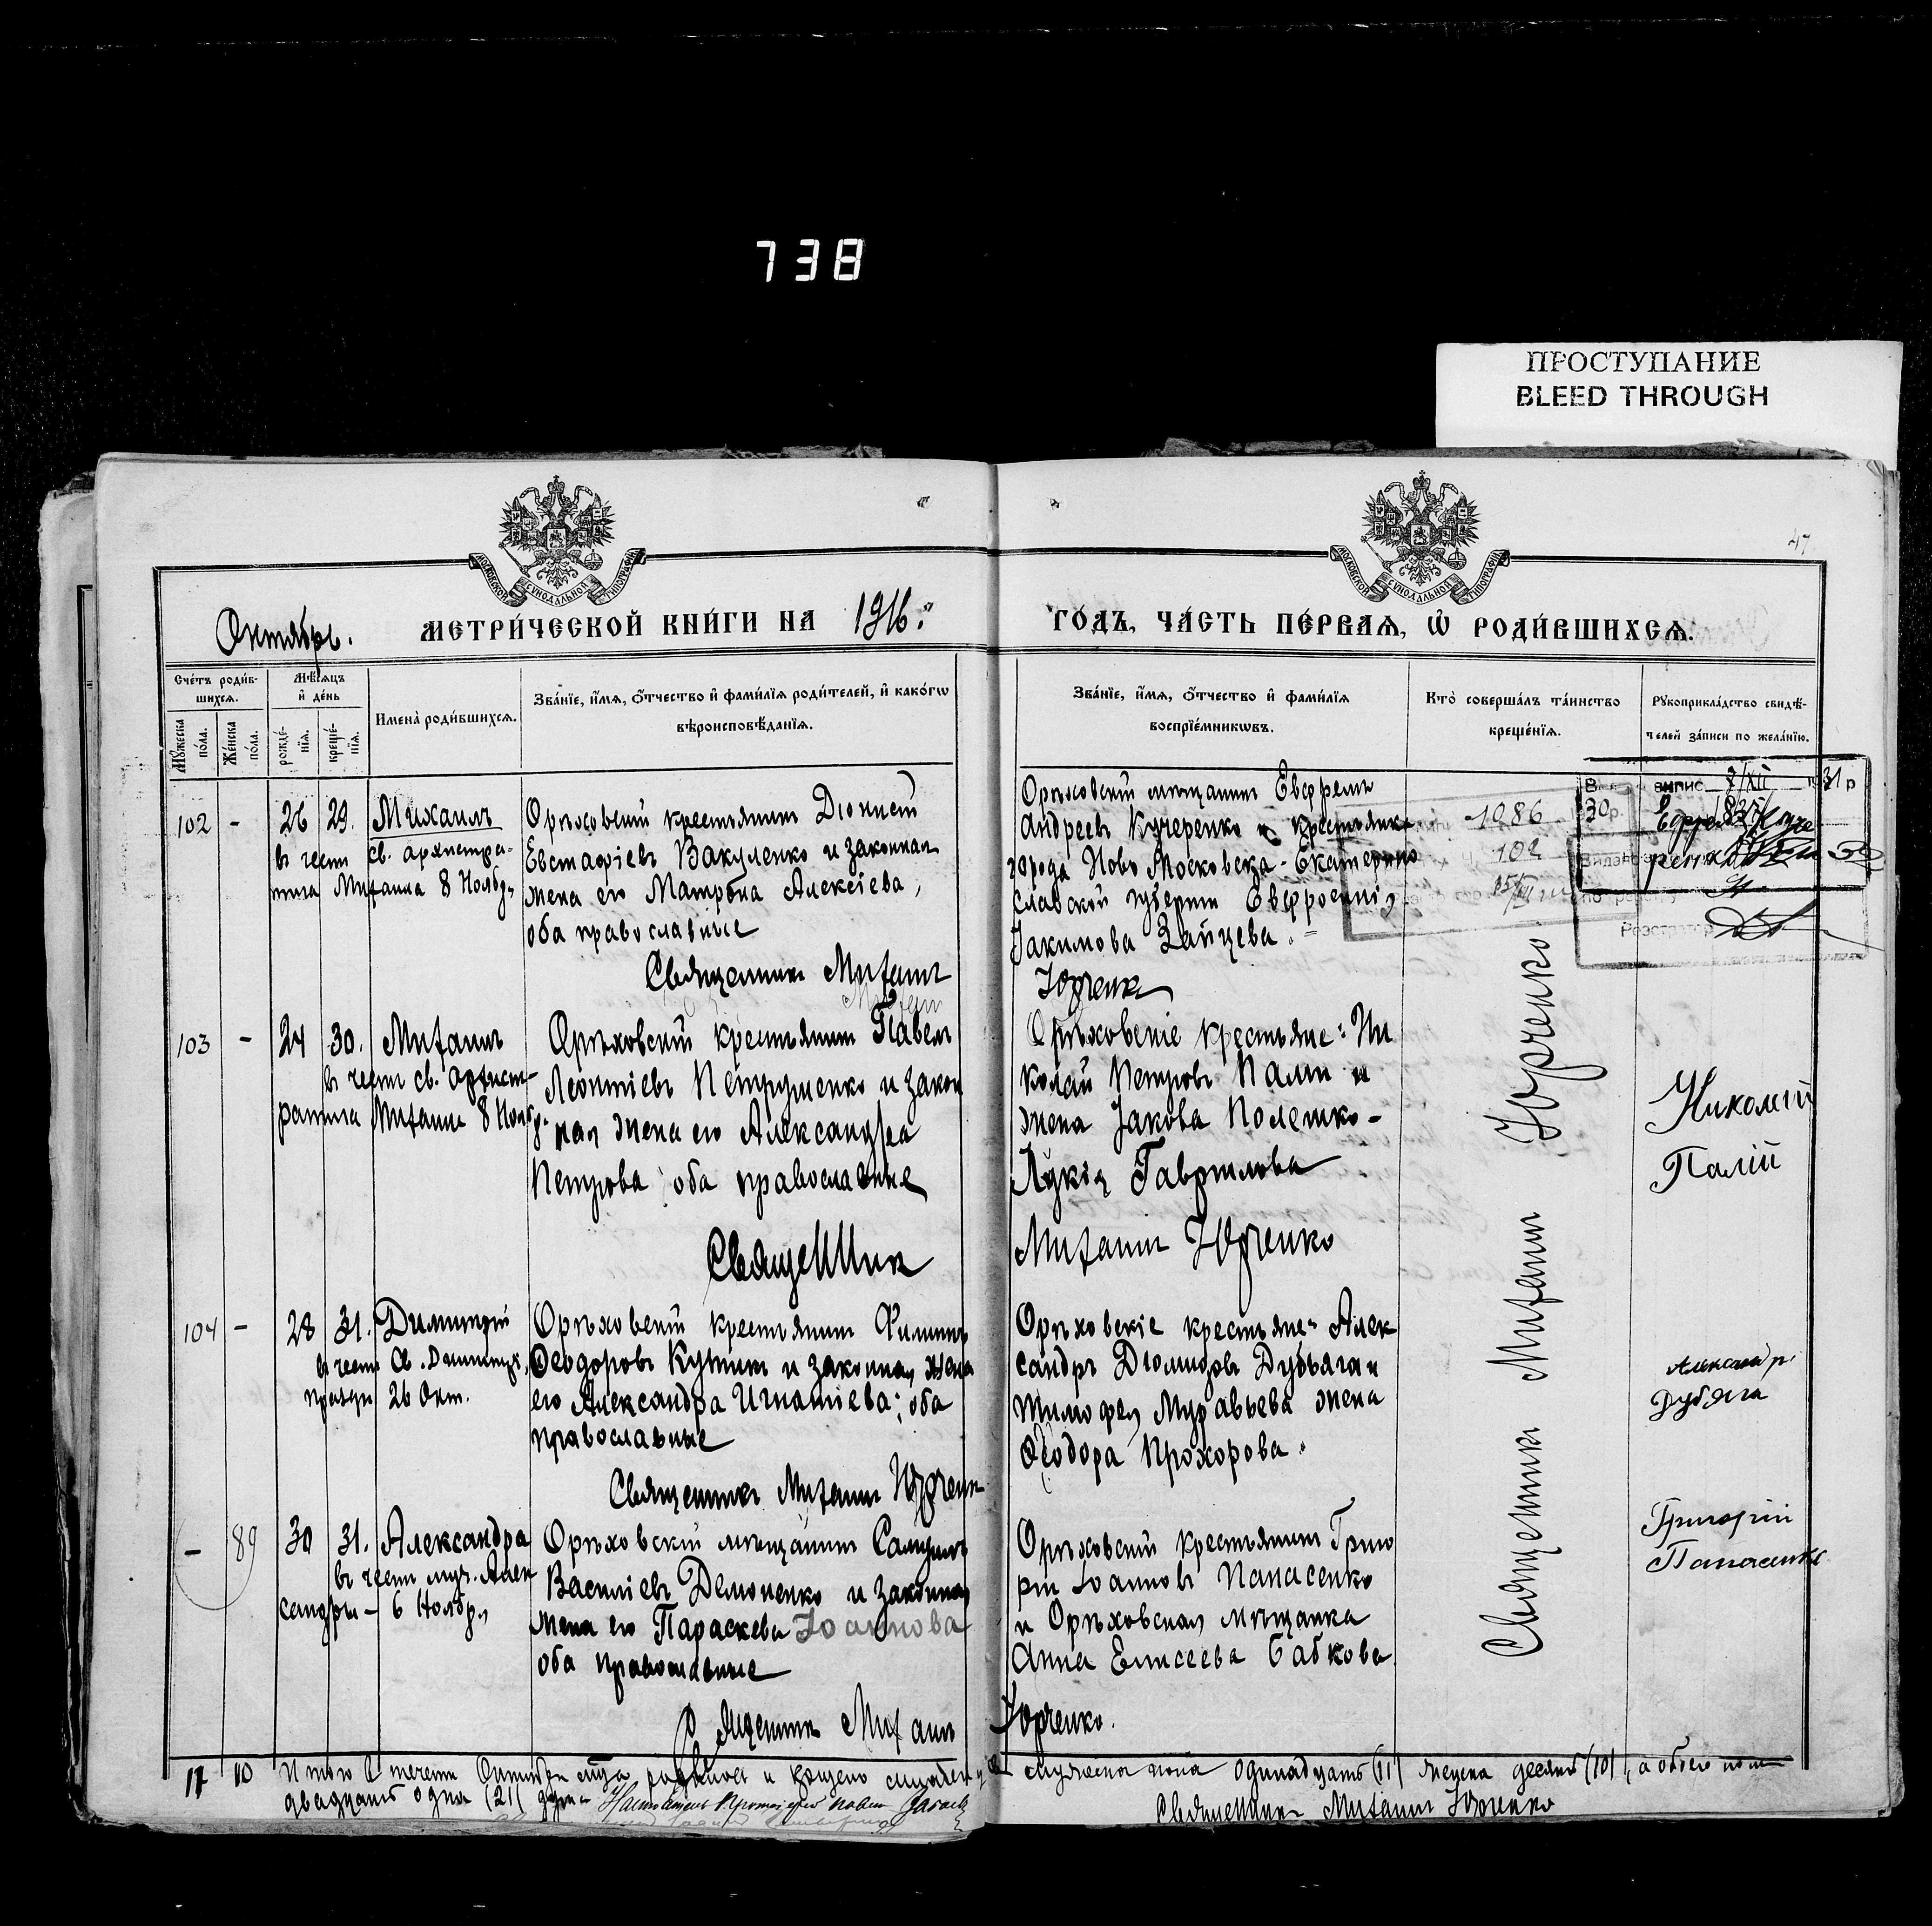 738
ПРОСТУПАНИЕ
BLEED THROUGH
МОСКОВСКОЙ СѴНОДАЛЬНОЙ ТИПОГРАФІИ
МОСКОВСКОЙ СѴНОДАЛЬНОЙ ТИПОГРАФІИ
47
Октябрь.
МЕТРИ́ЧЕСКОЙ КНИ́ГИ НА 1916:
ГО́ДЪ, ЧА́СТЬ ПЕ́РВАѦ, Ѡ РОДИ́ВШИХСѦ.
Сче́тъ роди́в-
шихсѧ.
Мѣ́сѧцъ
и҆ де́нь
Мꙋ́жеска
по́ла.
Же́нска
по́ла.
рожде́-
нїѧ.
креще́-
нїѧ.
Имена̀ роди́вшихсѧ.
Зва́нїе, и҆́мѧ, ѻ҆́тчество и҆ фами́лїѧ роди́телей, и҆ како́гѡ
вѣроисповѣ́данїѧ.
Зва́нїе, и҆́мѧ, ѻ҆́тчество и҆ фами́лїѧ
воспрїе́мникѡвъ.
Кто̀ соверша́лъ та́инство
креще́нїѧ.
Рꙋкоприкла́дство свидѣ́-
телей за́писи по жела́нїю.
102 - 26 29. Михаилъ
въ честь св. архистра-
тига Михаила 8 Ноябр.
Орѣховскій крестьянинъ Діонисій
Евстафіевъ Вакуленко и законная
жена его Матрона Алексіева,
оба православные
Священникъ Михаилъ
Орѣховскій мѣщанинъ Евфремъ
Андреевъ Кучеренко и крестьянка
города Ново Московска Екатерино
славской губерніи Евфросинія
Іакимова Зайцева.
Юрченко
1086
102
випис 7/XII 31 р
Реєстратор
Ефрем Куче
ренко
103 - 24 30. Михаилъ
въ честь св. архист-
ратига Михаила 8 Нояб
Орѣховскій крестьянинъ Павелъ
Леонтіевъ Петрушенко и закон
ная жена его Александра
Петрова; оба православные
Священникъ
Орѣховскіе крестьяне: Ни
колай Петровъ Палій и
жена Іакова Полешко-
Лукія Гаврилова
Михаилъ Юрченко
Николай
Палій
104 - 28 31. Димитрій
въ честь Св. Димитрія,
праздн 26 Окт.
Орѣховскій крестьянинъ Филиппъ
Ѳеодоровъ Купинъ и законная жена
его Александра Игнатіева; оба
православные
Священникъ Михаилъ Юрченко
Орѣховскіе крестьяне: Алек
сандръ Діомидовъ Дубяга и
Тимофея Муравьева жена
Ѳеодора Прохорова.
Александр
Дубяга
- 89 30 31. Александра
въ честь муч. Алек
сандры - 6 Ноябр.
Орѣховскій мѣщанинъ Самуилъ
Василіевъ Демоненко и законная
жена его Параскева Іоаннова
оба православные
Священникъ Михаилъ
Орѣховскій крестьянинъ Григо
рій Іоанновъ Папасенко
и Орѣховская мѣщанка
Анна Елисеева Бабкова
Юрченко.
Григорій
Папасенко
Священникъ Михаилъ Юрченко
11 10 Итого въ теченіи Октября м-ца родилось и крещено
мужеска пола одинадцать (11) женска десять (10), а обоего пола
двадцать одна (21) душа Настоятель Протоіерей Павелъ
Священникъ Михаилъ Юрченко